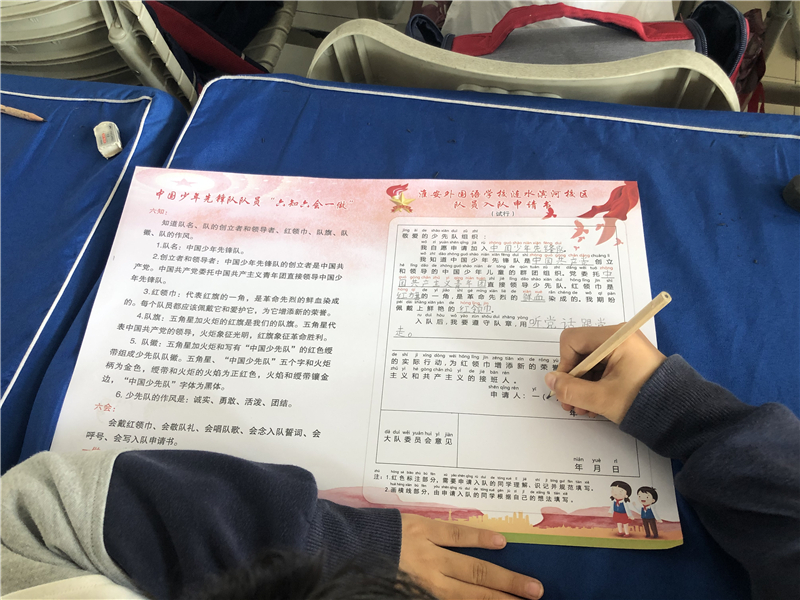 中国少年先锋队队员“六知六会一做”
六知：
知道队名、队的创立者和领导者、红领巾、队旗、队
徽、队的作风。
1.队名：中国少年先锋队。
2.创立者和领导者：中国少年先锋队的创立者是中国共
产党。中国共产党委托中国共产主义青年团直接领导中国少
年先锋队。
3.红领巾：代表红旗的一角，是革命先烈的鲜血染成
的。每个队员都应该佩戴它和爱护它，为它增添新的荣誉。
4.队旗：五角星加火炬的红旗是我们的队旗。五角星代
表中国共产党的领导，火炬象征光明，红旗象征革命胜利。
5. 队徽：五角星加火炬和写有“中国少先队”的红色绶
带组成少先队队徽。五角星、“中国少先队”五个字和火炬
柄为金色，绶带和火炬的火焰为正红色，火焰和绶带镶金
边，“中国少先队”字体为黑体。
6. 少先队的作风是：诚实、勇敢、活泼、团结。
六会：
会戴红领巾、会敬队礼、会唱队歌、会念入队誓词、会
呼号、会写入队申请书。
淮安外国语学校涟水滨河校区
队员入队申请书
（试行）
敬爱的少先队组织：
我自愿申请加入中国少年先锋队
我知道中国少年先锋队是中国共产党创立
和领导的中国少年儿童的群团组织。党委托中
国共产主义青年团直接领导少先队。红领巾是
红旗的一角，是革命先烈的鲜血染成的。我期盼
佩戴上鲜艳的红领巾。
入队后，我要遵守队章，用听党话跟党
走。
的实际行动，为红领巾增添新的荣誉
主义和共产主义的接班人。
申请人：一（
年
dà duì wěi yuán huì yì jiàn
大队委员会意见
nián yuè rì
年 月 日
注：1.红色标注部分，需要申请入队的同学理解、识记并规范填写。
2.画横线部分，由申请入队的同学根据自己的想法填写。